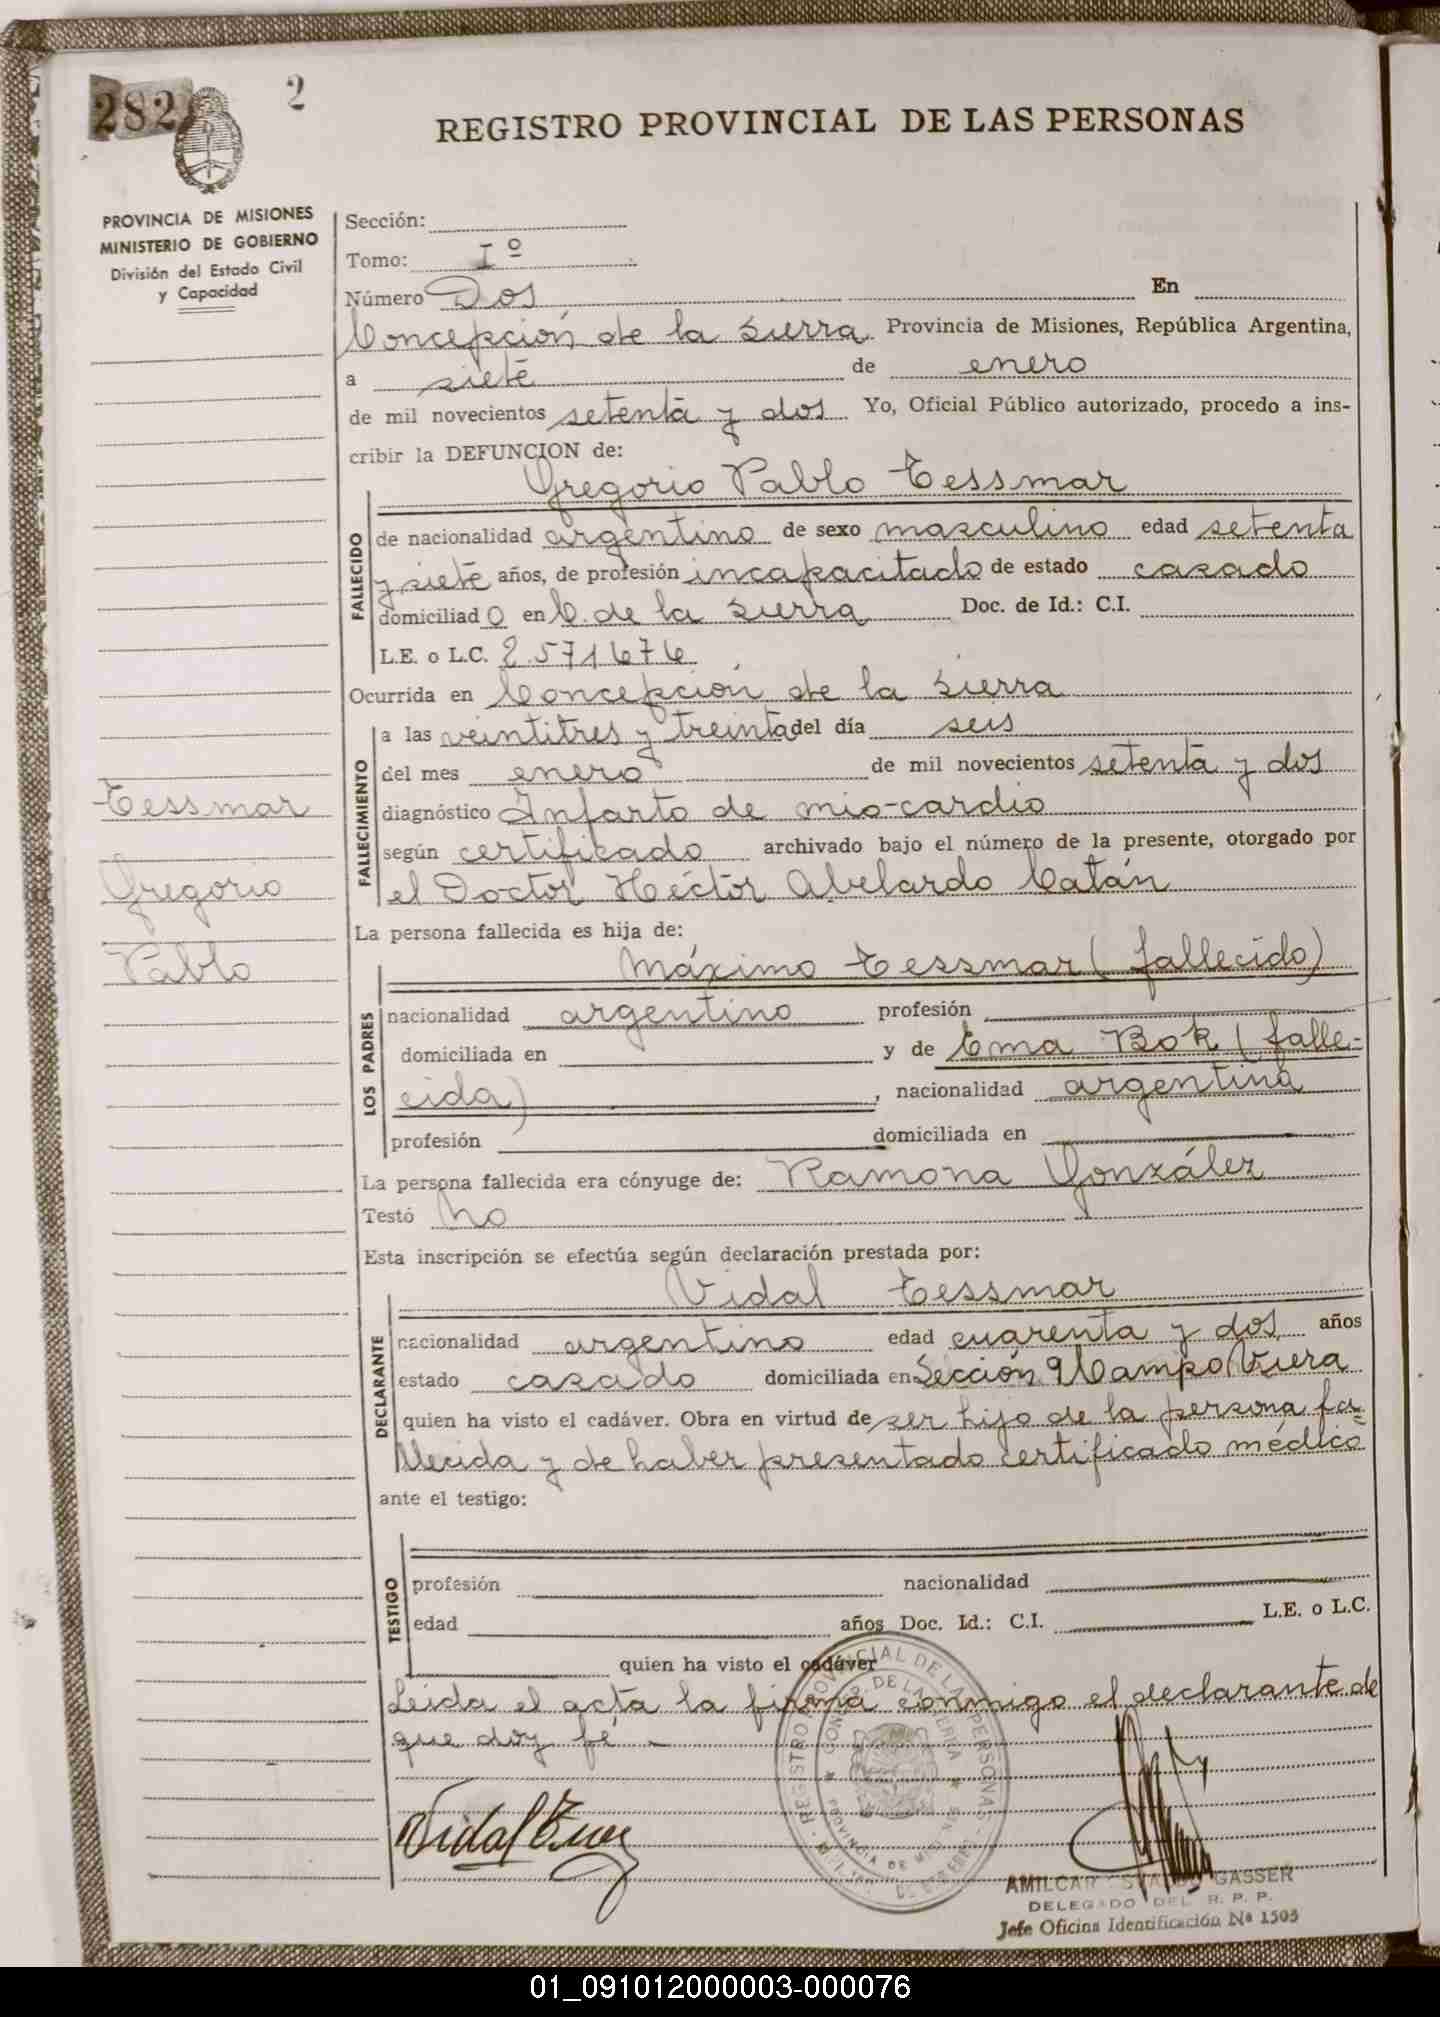 282 2
REGISTRO PROVINCIAL DE LAS PERSONAS
PROVINCIA DE MISIONES
MINISTERIO DE GOBIERNO
División del Estado Civil
y Capacidad
Sección:
Tomo: Iº
Número Dos En
Concepción de la Sierra Provincia de Misiones, República Argentina,
a siete de enero
de mil novecientos setenta y dos Yo, Oficial Público autorizado, procedo a ins-
cribir la DEFUNCION de:
Gregorio Pablo Tessmar
FALLECIDO
de nacionalidad argentino de sexo masculino edad setenta
y siete años, de profesión incapacitado de estado casado
domiciliado en C. de la Sierra Doc. de Id.: C.I.
L.E. o L.C. 2.571676
Ocurrida en Concepción de la Sierra
FALLECIMIENTO
a las veintitres y treinta del día seis
del mes enero de mil novecientos setenta y dos
diagnóstico Infarto de mio-cardio
según certificado archivado bajo el número de la presente, otorgado por
el Doctor Héctor Abelardo Catán
Tessmar
Gregorio
Pablo
La persona fallecida es hija de:
Máximo Tessmar (fallecido)
LOS PADRES
nacionalidad argentino profesión
domiciliada en y de Ema Bok (falle-
cida) , nacionalidad argentina
profesión domiciliada en
La persona fallecida era cónyuge de: Ramona González
Testó no
Esta inscripción se efectúa según declaración prestada por:
Vidal Tessmar
DECLARANTE
nacionalidad argentino edad cuarenta y dos años
estado casado domiciliada en Sección 9 Campo Viera
quien ha visto el cadáver. Obra en virtud de ser hijo de la persona fa-
llecida y de haber presentado certificado médico
ante el testigo:
TESTIGO
profesión nacionalidad
edad años Doc. Id.: C.I. L.E. o L.C.
quien ha visto el cadáver
Leida el acta la firma conmigo el declarante de
que doy fé.-
REGISTRO PROVINCIAL DE LAS PERSONAS
PROVINCIA DE MISIONES
Vidal
AMILCAR GASSER
DELEGADO DEL R. P. P.
Jefe Oficina Identificación Nº 1505
01_091012000003-000076